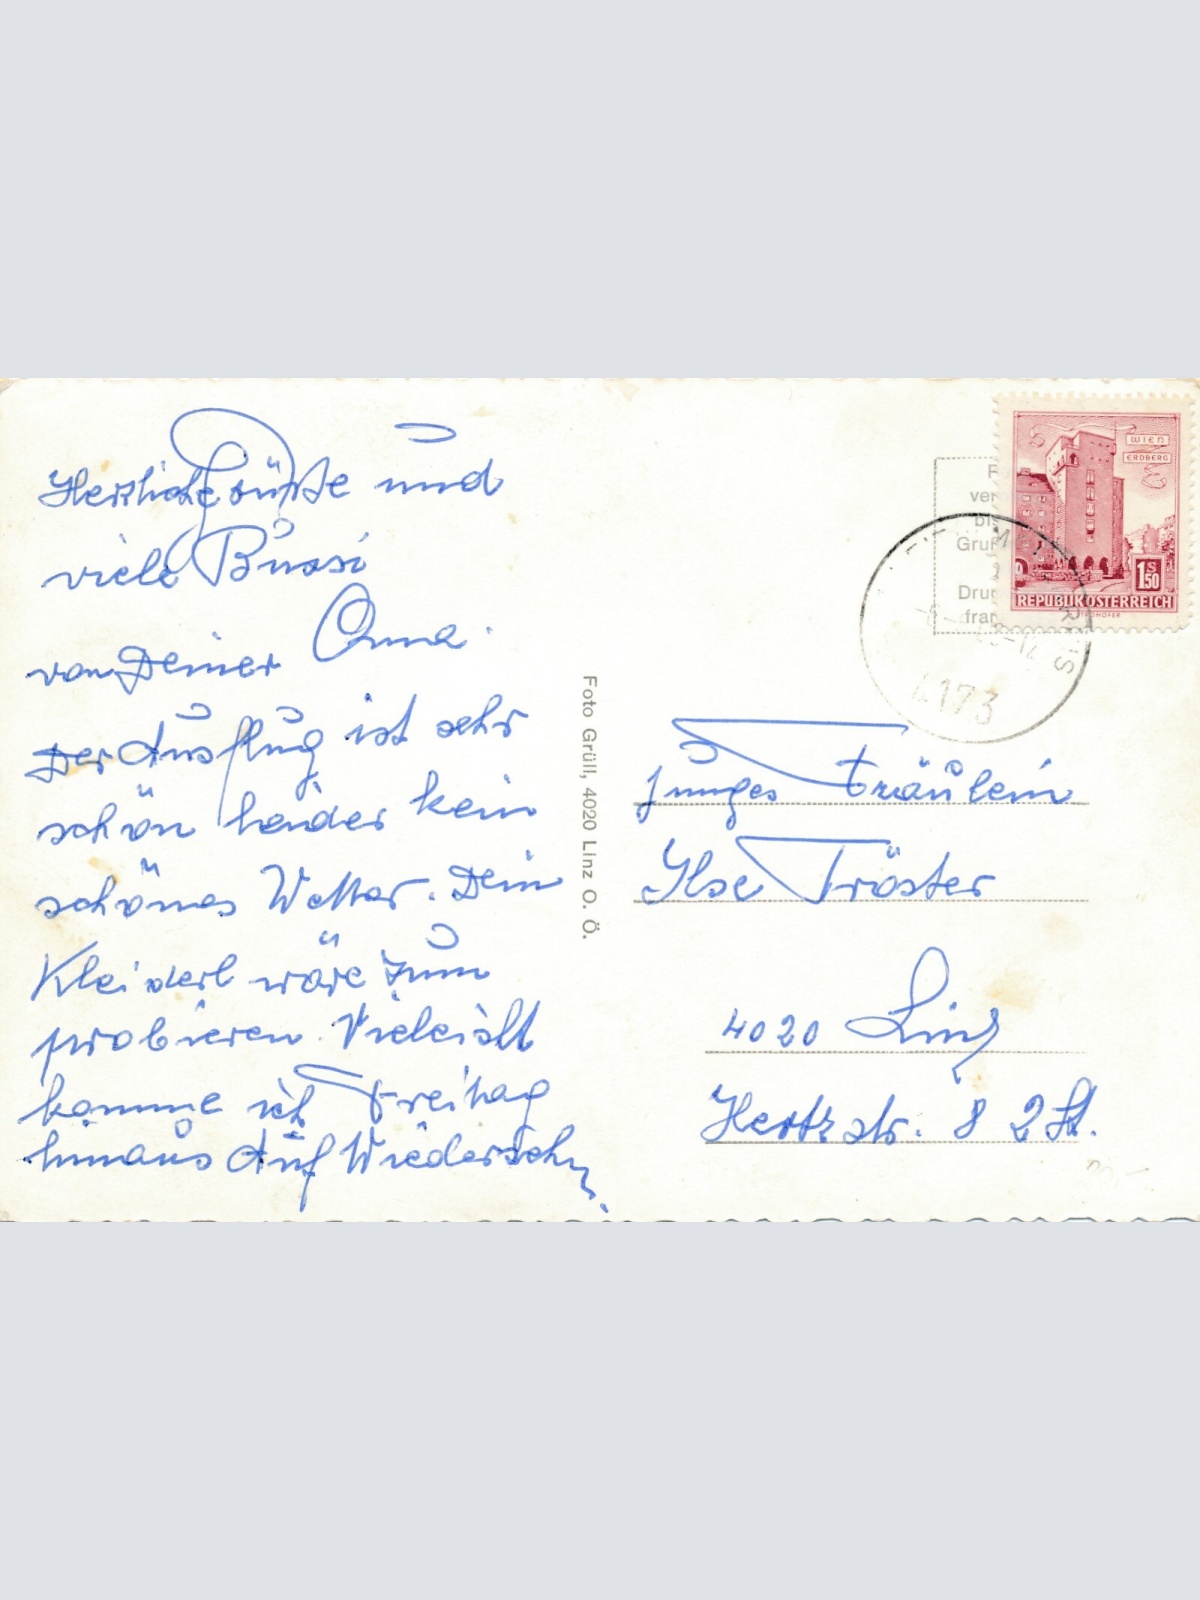 Herzliche Grüße und
viele Bussi
von Deiner Oma.
Der Ausflug ist sehr
schön leider kein
schönes Wetter. Dein
Kleiderl wäre zum
probieren. Vieleicht
komme ich Freitag
hinaus Auf Wiedersehn.
Foto Grüll, 4020 Linz O. Ö.
WIEN
ERDBERG
1 S 50
REPUBLIK ÖSTERREICH
ver
bis
Gru
Druc
fran
4173
junges Fräulein
Ilse Tröster
4020 Linz
Hertzstr. 8 2 St.